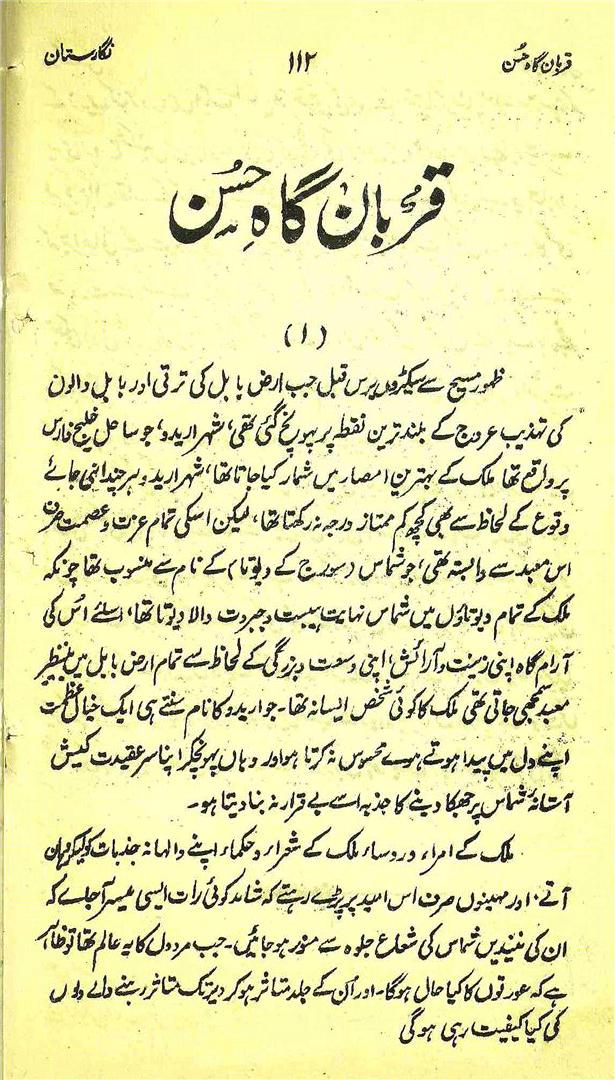 قربان گاہ حُسن
۱۱۲
نگارستان
قُربان گاہِ حُسن
(۱)
ظہورِ مسیح سے سیکڑوں برس قبل جب ارض بابل کی ترقی اور بابل والون
کی تہذیب عروج کے بلند ترین نقطہ پر پہونچ گئی تھی، شہر اریدو، جو ساحل خلیج فارس
پر واقع تھا ملک کے بہترین امصار میں شمار کیا جاتا تھا، شہر اریدو ہر چند اپنی جائے
وقوع کے لحاظ سے بھی کچھ کم ممتاز درجہ نہ رکھتا تھا، لیکن اسکی تمام عزت و عصمت صرف
اس معبد سے وابستہ تھی، جو شماس (سورج کے دیوتا) کے نام سے منسوب تھا چونکہ
ملک کے تمام دیوتاؤں میں شماس نہایت ہیبت و جبروت والا دیوتا تھا، اسلئے اُس کی
آرام گاہ اپنی زینت و آرائش، اپنی وسعت و بزرگی کے لحاظ سے تمام ارض بابل میں بینظیر
معبد سمجھی جاتی تھی ملک کا کوئی شخص ایسا نہ تھا۔ جو اریدو کا نام سنتے ہی ایک خیال عظمت
اپنے دل میں پیدا ہوتے ہوے محسوس نہ کرتا ہو اور وہاں پہونچکر اپنا سر عقیدت کیش
آستانہ شماس پر جھکا دینے کا جذبہ اسے بے قرار نہ بنا دیتا ہو۔
ملک کے امراء و روساء ملک کے شعراء و حکماء اپنے والہانہ جذبات کو لیکر وہان
آتے، اور مہینوں صرف اس امید پر پڑے رہتے کہ شاید کوئی رات ایسی میسر آجائے کہ
ان کی نیندیں شماس کی شعاع جلوہ سے منور ہو جائیں۔ جب مردوں کا یہ عالم تھا تو ظاہر
ہے کہ عورتوں کا کیا حال ہوگا۔ اور اُن کے جلد متاثر ہو کر دیر تک متاثر رہنے والے دلوں
کی کیا کیفیت رہی ہوگی